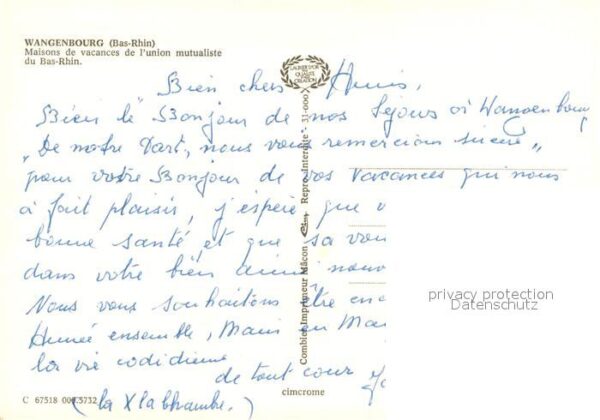 WANGENBOURG (Bas-Rhin)
Maisons de vacances de l'union mutualiste
du Bas-Rhin.
Bien chers Amis,
Bien le Bonjour de nos Sejours à Wangenbourg
"De notre Part, nous vous remercions sincère"
pour votre Bonjour de vos vacances qui nous
à fait plaisir, j'espère que v
bonne santé et que sa
dans votre bien
Nous vous souhaitons être en
Année ensemble, Main en Ma
la vie codidienne
de tout coeur
(la X la Chambre.)
LAURIER D'OR
DE
QUALITÉ
CREATION
Combier Imprimeur Mâcon Repro. Interdite 31-000
C 67518 000 5732
cimcrome
privacy protection
Datenschutz